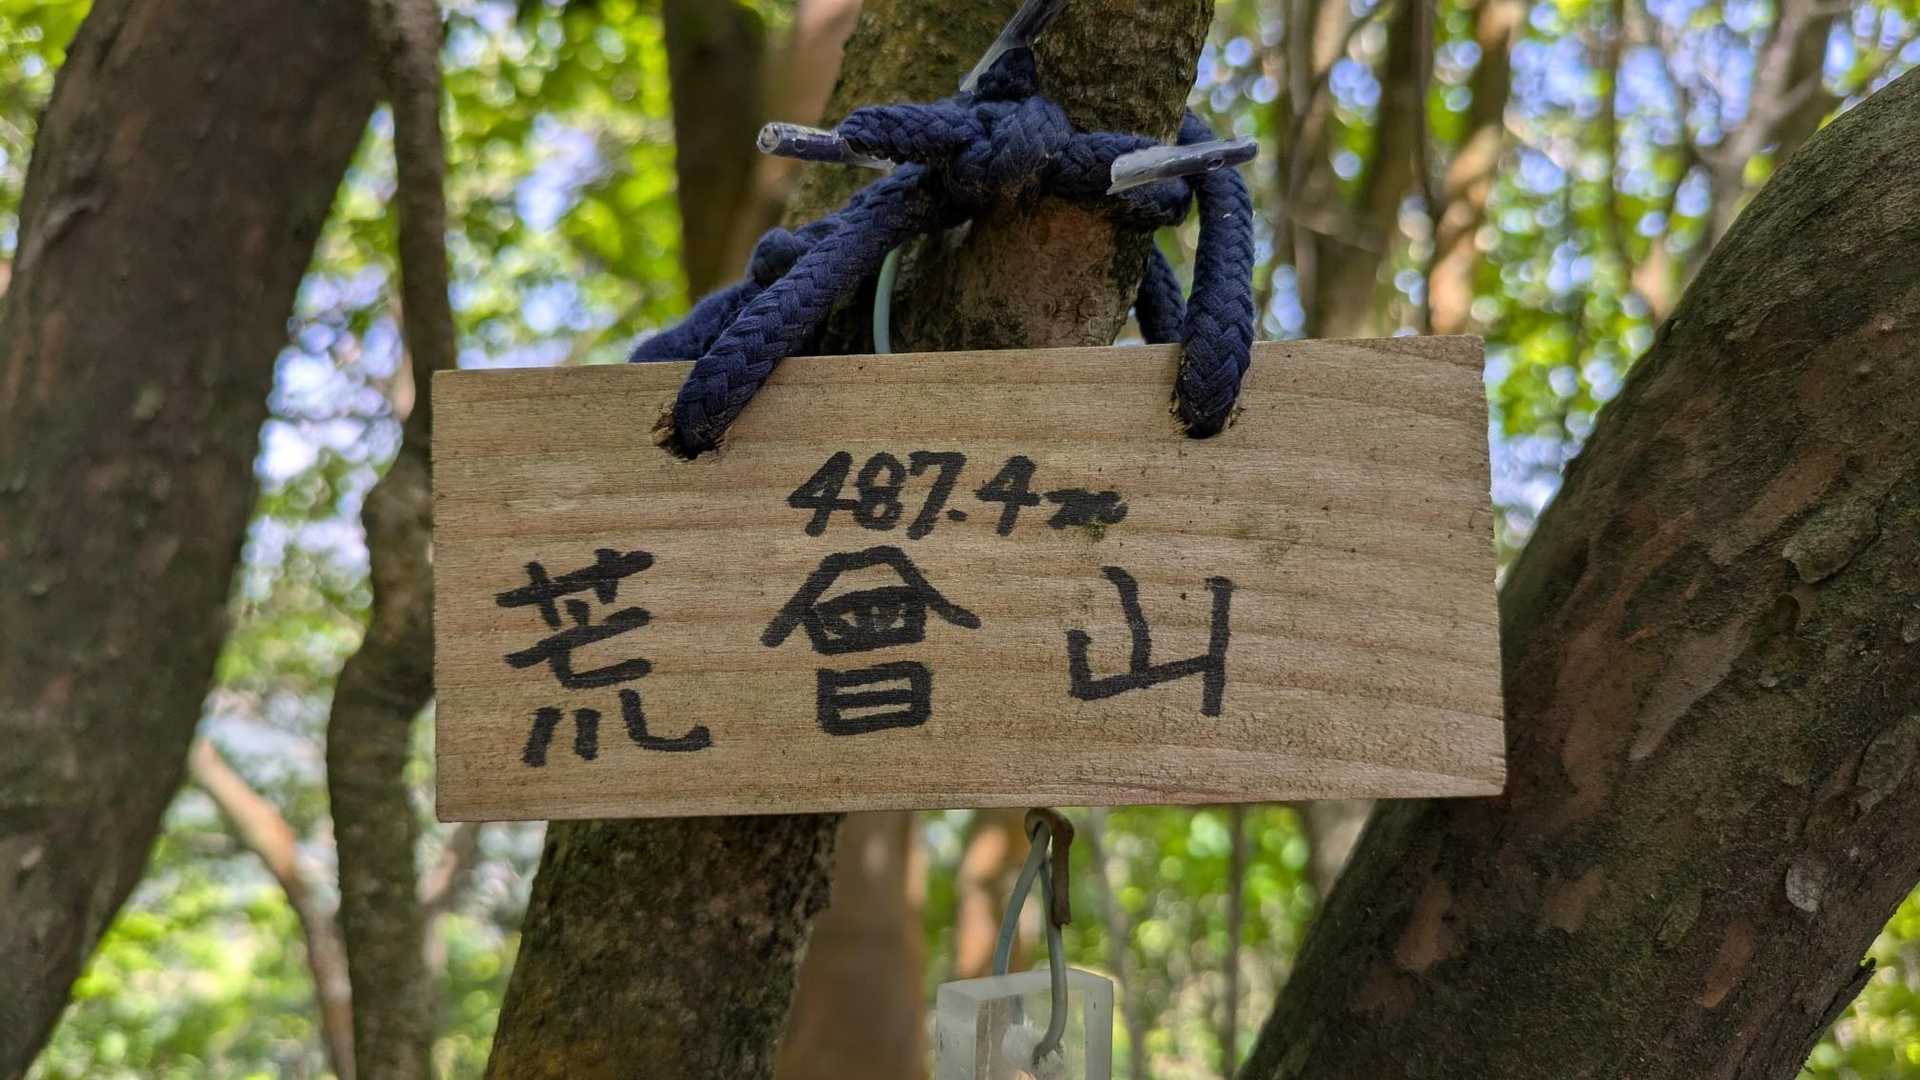 487.4m
荒會山